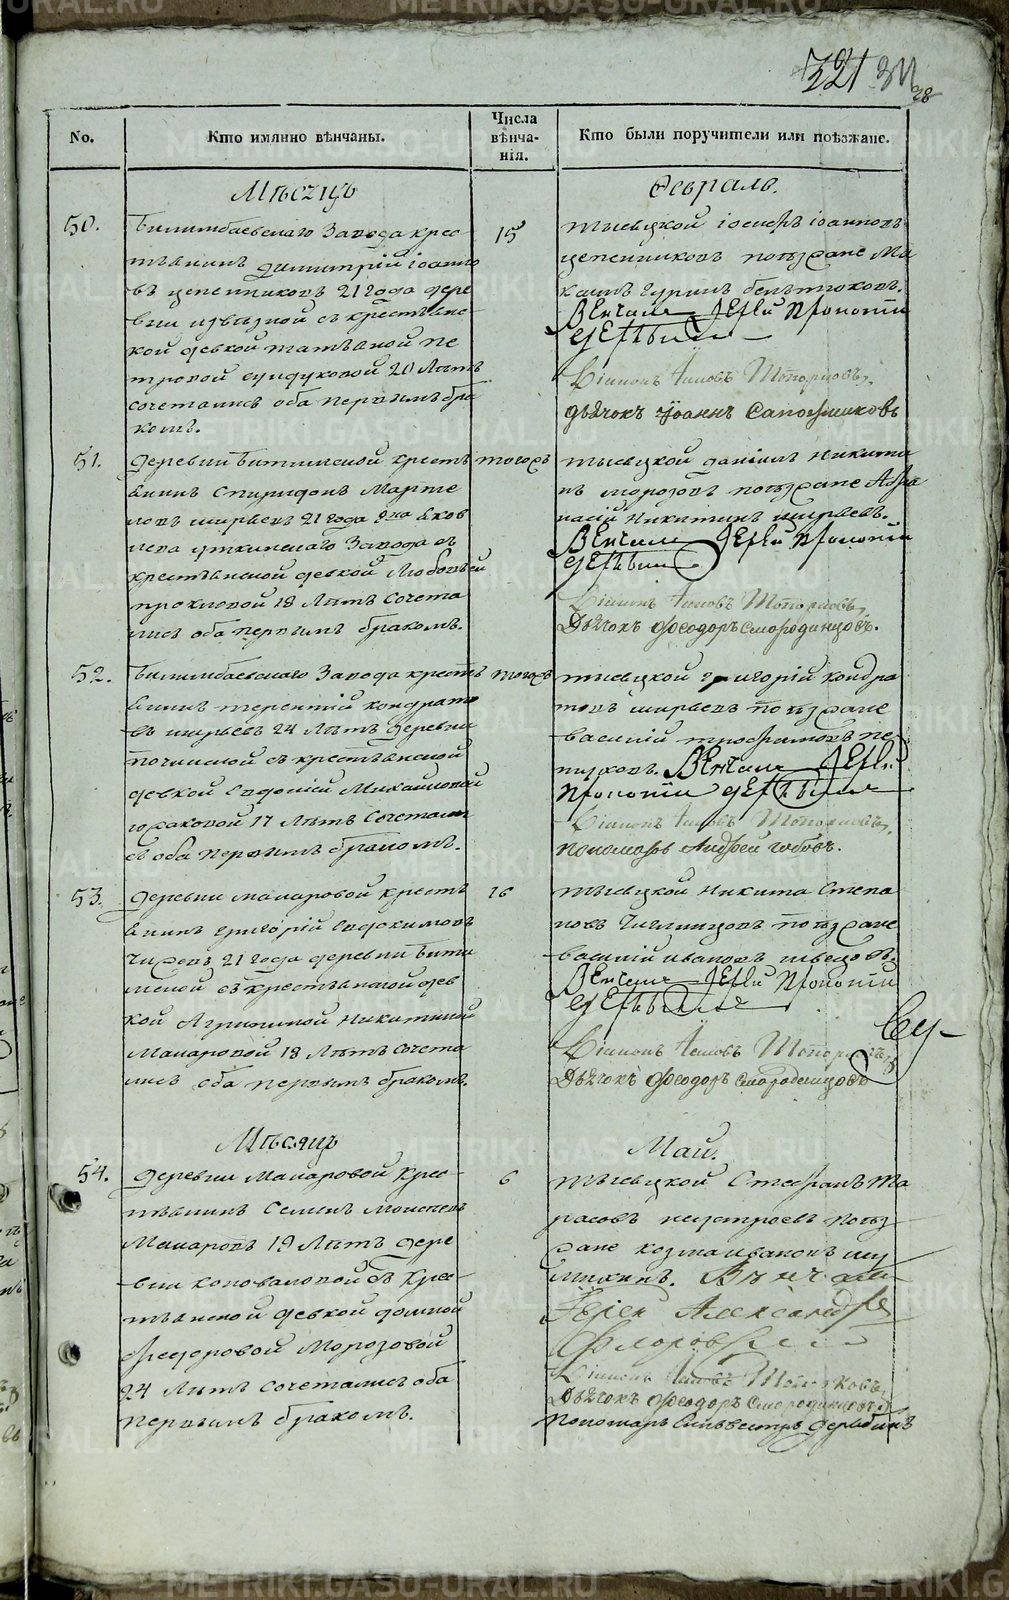 321
28
No.
Кто имянно вѣнчаны.
Числа вѣнча-нія.
Кто были поручители или поѣзжане.
Мѣсяцъ
Февраль.
50.
Билимбаевскаго Завода крес
тьянинъ Димитрій Іоанно
въ цепенниковъ 21 года дере
вни извѣзной съ крестьянс
кой девкой татьяной пе
тровой сундуковой 20 лѣтъ
сочетались оба первымъ бра
комъ.
15
тысецкой Іосифъ Іоанновъ
цепенниковъ поѣзжане Ма
ксимъ гуринъ
Венчалъ Іерей Прокопій
Діаконъ Топорковъ,
дьячокъ Іоаннъ Сапожниковъ
51.
Деревни Битимской крестъ
янинъ Спиридонъ Марте
ловъ ширяевъ 21 года
уткинскаго Завода съ
крестьянской девкой Любовьей
прокловой 18 лѣтъ Сочета
лись оба первымъ бракомъ.
тогожъ
тысецкой даніилъ Никити
нъ морозовъ поѣзжане Афа
насій Никитинъ ширяевъ.
Венчалъ Іерей Прокопій
Діаконъ Топорковъ,
Дьячокъ Феодоръ Смородинцовъ.
52.
Билимбаевскаго Завода кресть
янинъ терентій кондрато
въ ширяевъ 24 лѣтъ деревни
починской съ крестьянской
девкой Евдокіей Михаиловой
17 лѣтъ Сочетали
сь оба первымъ бракомъ.
тогожъ
тысецкой григорій кондра
товъ ширяевъ поѣзжане
василій трофимовъ пе
Венчалъ Іерей
Прокопій
Діаконъ Топорковъ,
Пономарь Андрей
53.
Деревни макаровой кресть
янинъ григорій Евдокимовъ
21 года деревни Бити
мской съ крестьянской дев
кой Агрипиной Никитиной
Макаровой 18 лѣтъ Сочета
лись оба первымъ бракомъ.
16
тысецкой Никита Степа
новъ поѣзжане
василій ивановъ швецовъ.
Венчалъ Іерей Прокопій
Діаконъ Топорковъ,
Дьячокъ Феодоръ Смородинцовъ
Мѣсяцъ
Май.
54.
Деревни Макаровой Крес
тьянинъ Семенъ Моисеевъ
Макаровъ 19 лѣтъ дере
вни коноваловой съ Крес
тьянской девкой домной
Феодоровой Морозовой
24 лѣтъ Сочетались оба
первымъ бракомъ.
6
тысецкой Стефанъ Та
расовъ неустроевъ поѣз
жане козма ивановъ шу
Вѣнчалъ
Іерей Александръ
Флоровскій
Діаконъ Топорковъ,
Дьячокъ Феодоръ Смородинцовъ
Пономарь Сильвестръ Дерябинъ
METRIKI.GASO-URAL.RU